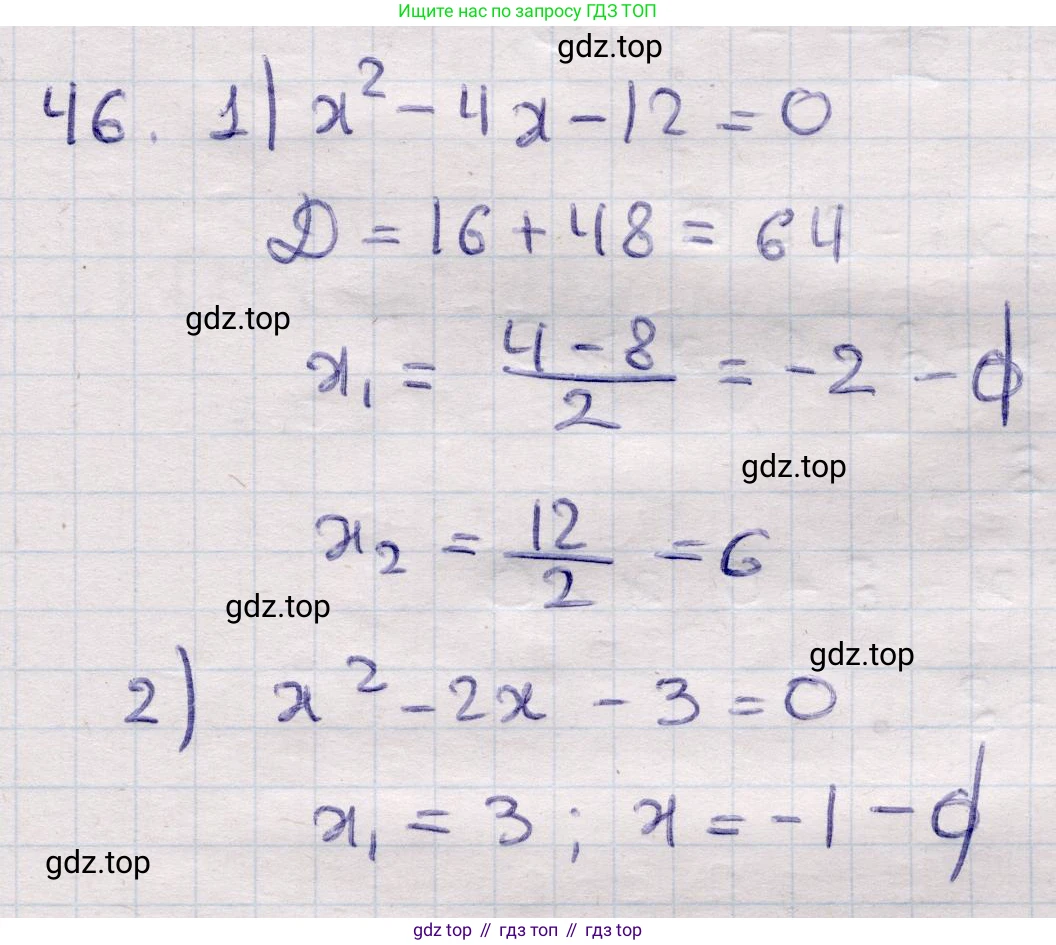 Ищите нас по запросу ГДЗ ТОП
gdz.top
46. 1) x² - 4x - 12 = 0
D = 16 + 48 = 64
gdz.top
x₁ = (4 - 8)/2 = -2 - ∅
gdz.top
x₂ = 12/2 = 6
gdz.top
gdz.top
2) x² - 2x - 3 = 0
x₁ = 3 ; x = -1 - ∅
gdz.top
gdz top // гдз топ // gdz top